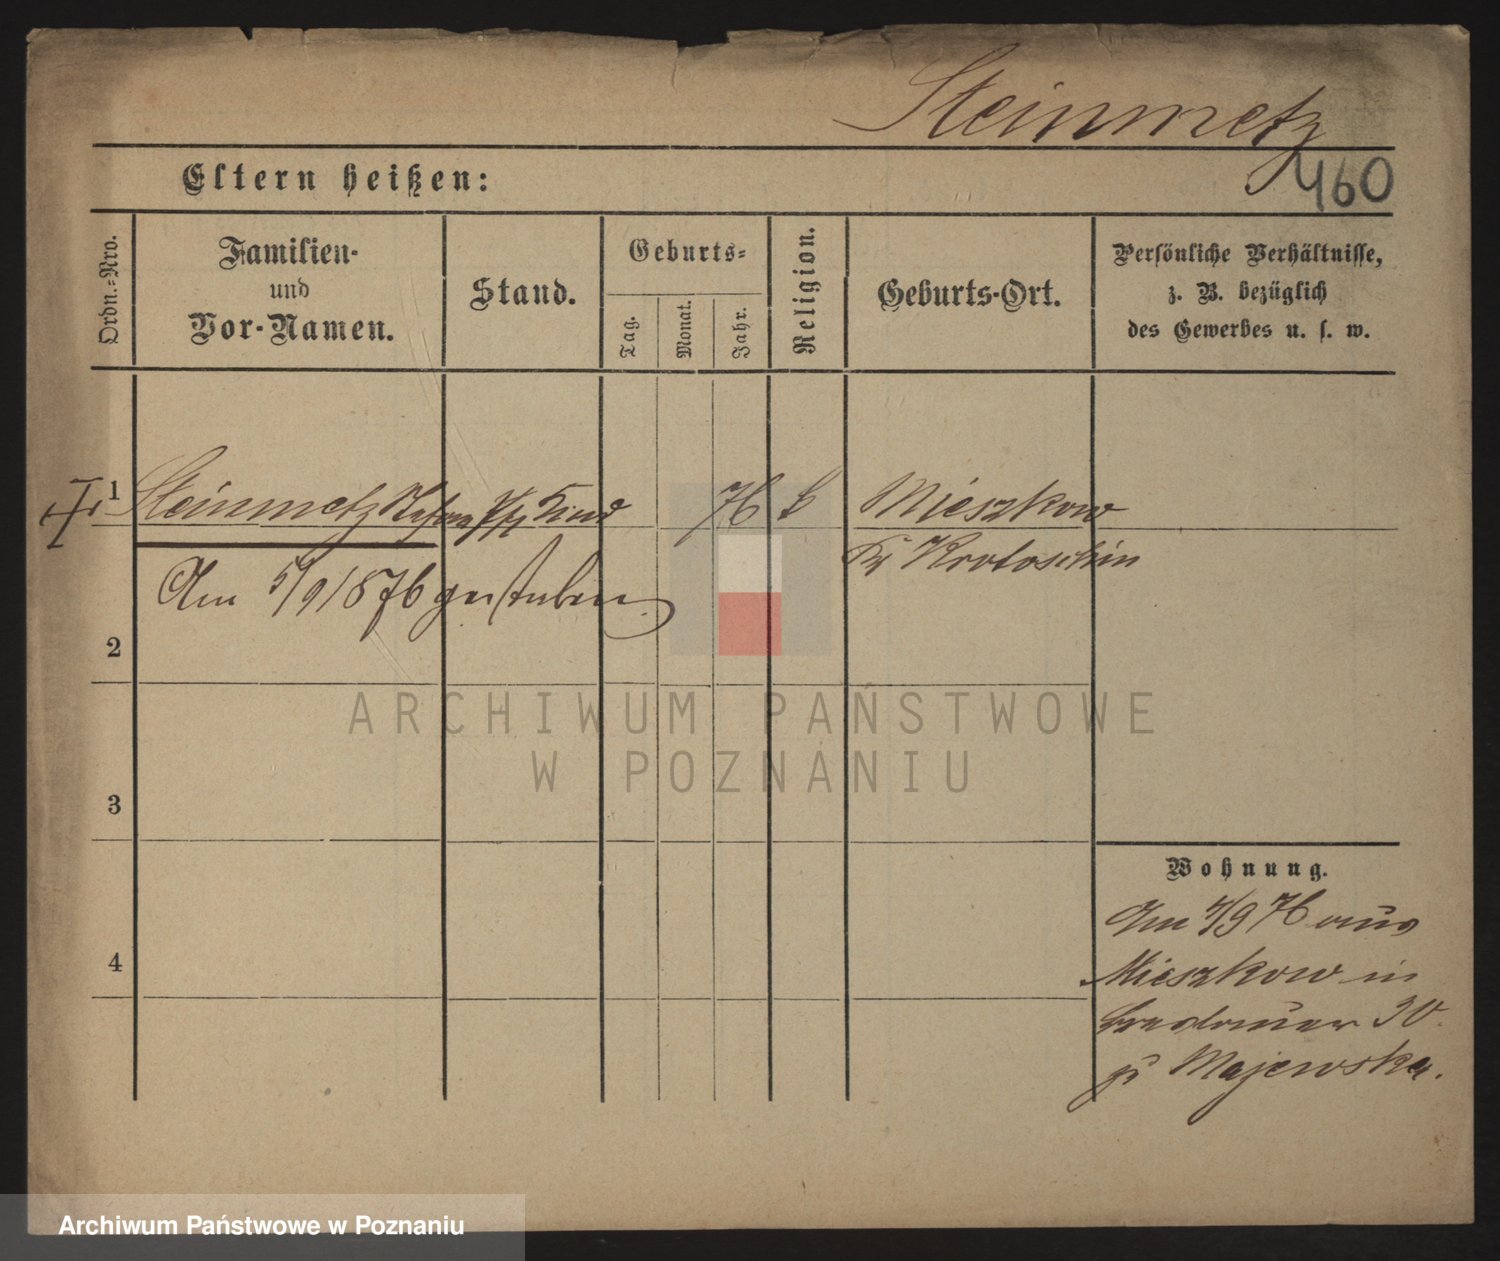 Steinmetz
460
Eltern heißen:
Ordn.-Nro.
Familien-
und
Vor-Namen.
Stand.
Geburts-
Tag.
Monat.
Jahr.
Religion.
Geburts-Ort.
Persönliche Verhältnisse,
z. B. bezüglich
des Gewerbes u. s. w.
1 Steinmetz Kind 76 Mieszkow
Kr Krotoschin
Am 5/9 1876 gestorben
2
3
4
Wohnung.
Am 4/9 76 aus
Mieszkow in
30.
zu Majewska.
ARCHIWUM PAŃSTWOWE
W POZNANIU
Archiwum Państwowe w Poznaniu